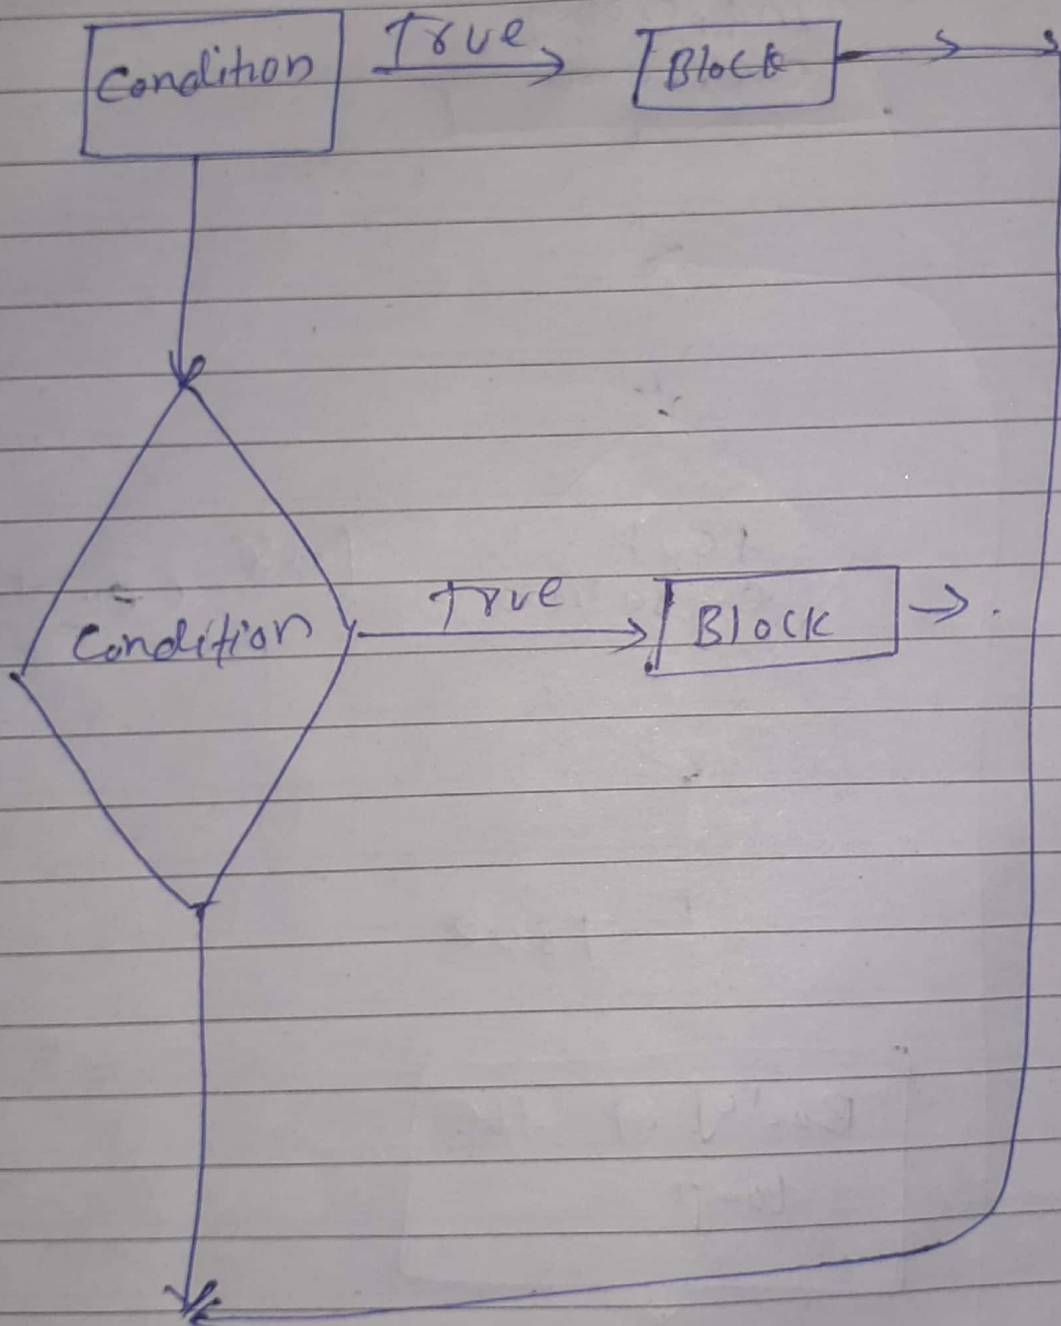 Condition True Block
Condition True Block